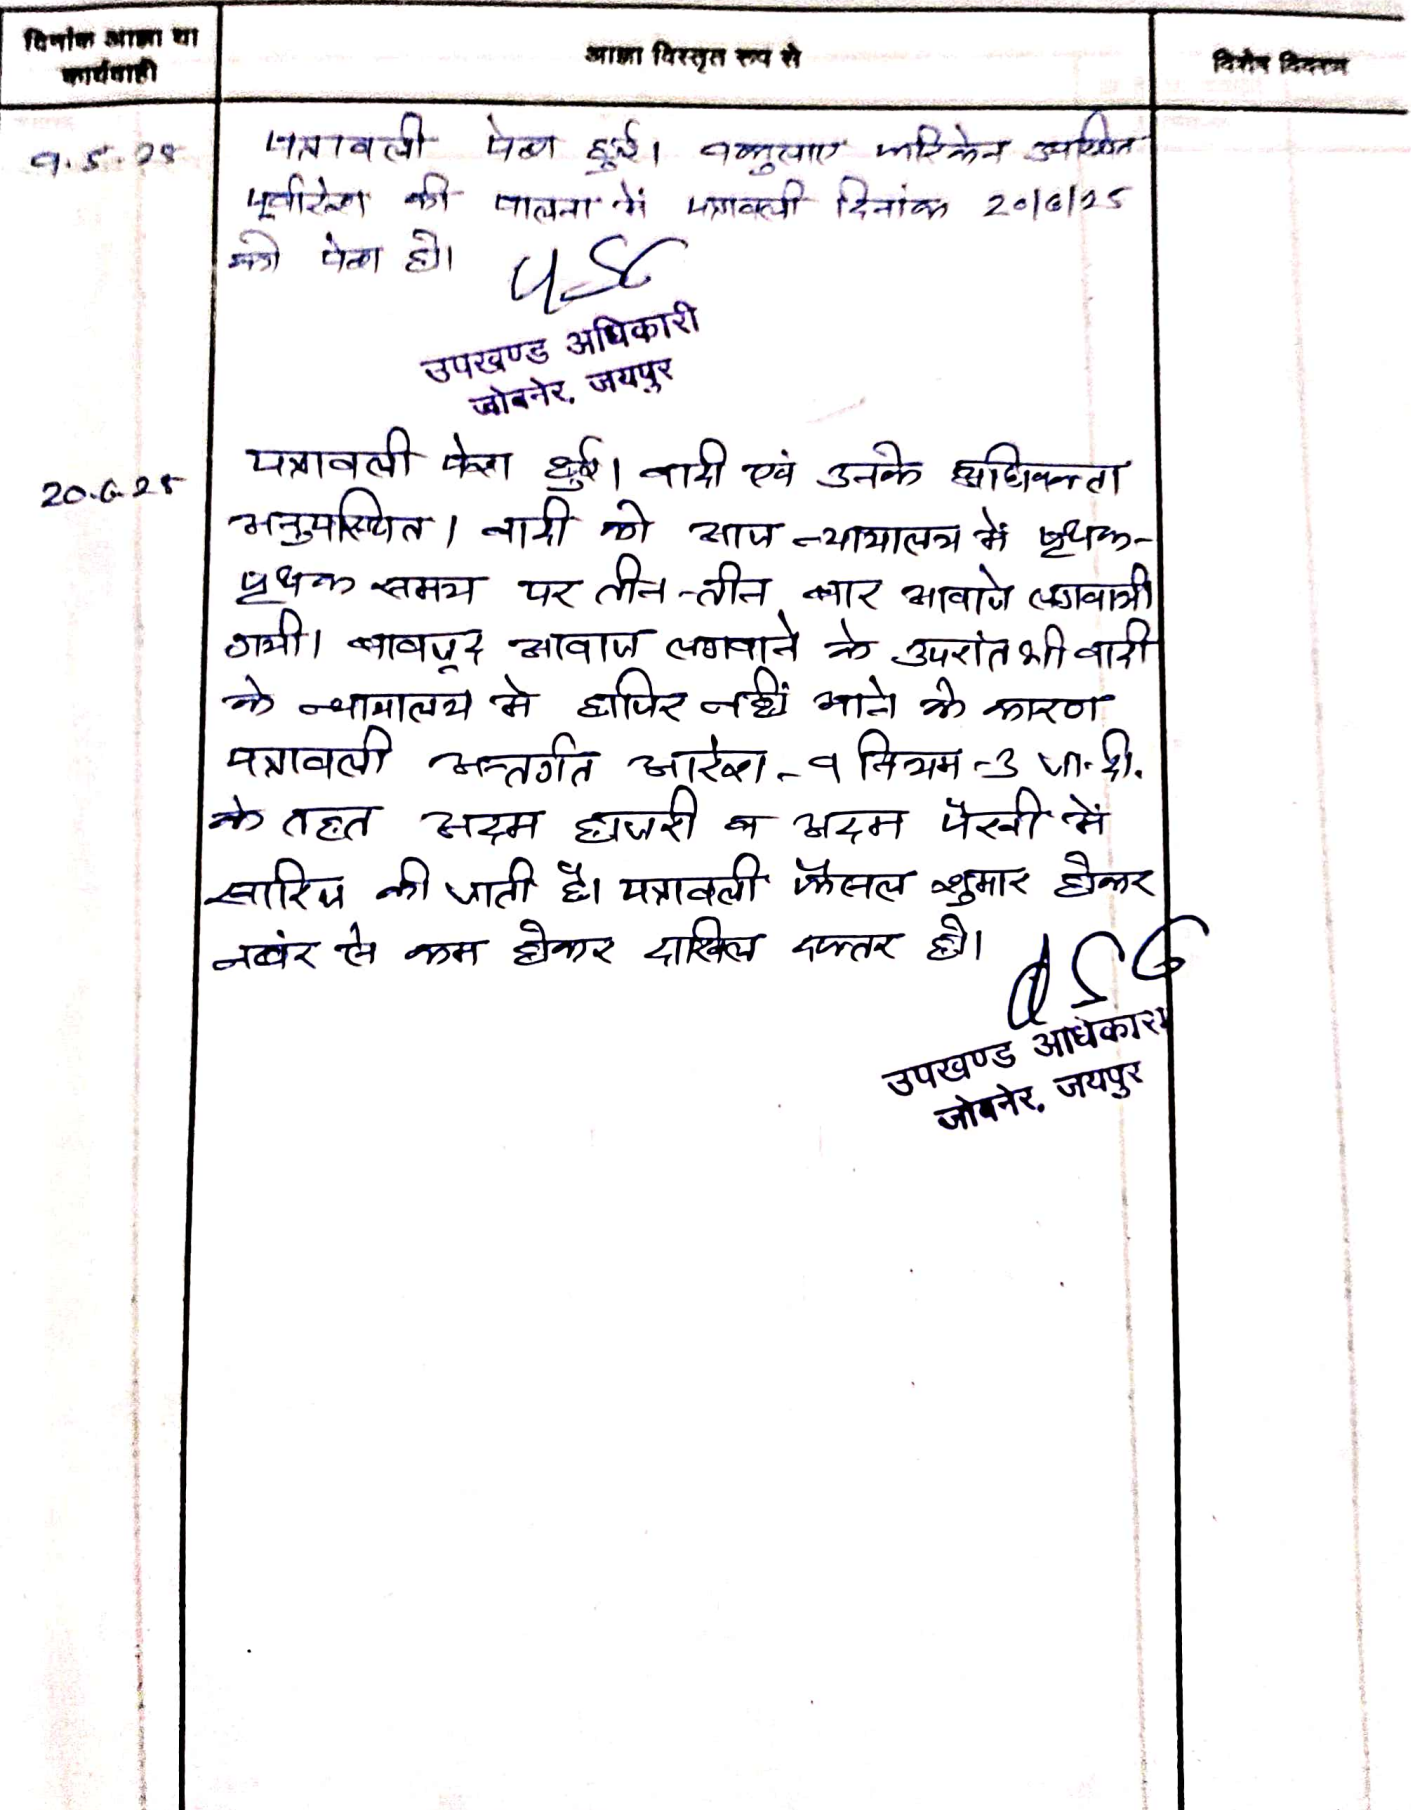 दिनांक आज्ञा या
कार्यवाही
आज्ञा विस्तृत रूप से
विशेष विवरण
9.5.25
पत्रावली पेश हुई। वकुलाए फरिकेन उपस्थित
पूर्वादेश की पालना में पत्रावली दिनांक 20/6/25
को पेश हो।
उपखण्ड अधिकारी
जोबनेर, जयपुर
20.6.25
पत्रावली पेश हुई। वादी एवं उनके अधिवक्ता
अनुपस्थित। वादी को आज न्यायालय में पृथक-
पृथक समय पर तीन-तीन बार आवाजे लगवायी
गयी। बावजूद आवाज लगवाने के उपरांत भी वादी
के न्यायालय मे हाजिर नहीं आने के कारण
पत्रावली अन्तर्गत आदेश-9 नियम-3 जा.दी.
के तहत अदम हाजरी व अदम पैरवी में
खारिज की जाती है। पत्रावली फैसल शुमार होकर
नबंर से कम होकर दाखिल दफ्तर हो।
उपखण्ड अधिकारी
जोबनेर, जयपुर